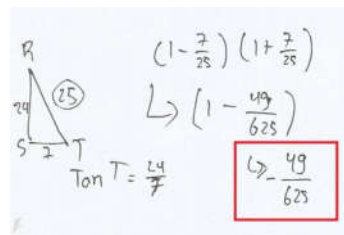 R
24
25
S 7 T
Tan T = 24/7
(1 - 7/25) (1 + 7/25)
↳ (1 - 49/625)
↳ - 49/625